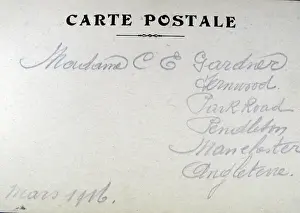 CARTE POSTALE
Madame C E Gardner
Fernwood.
Park Road
Pendleton
Manchester
Angleterre.
Mars 1916.